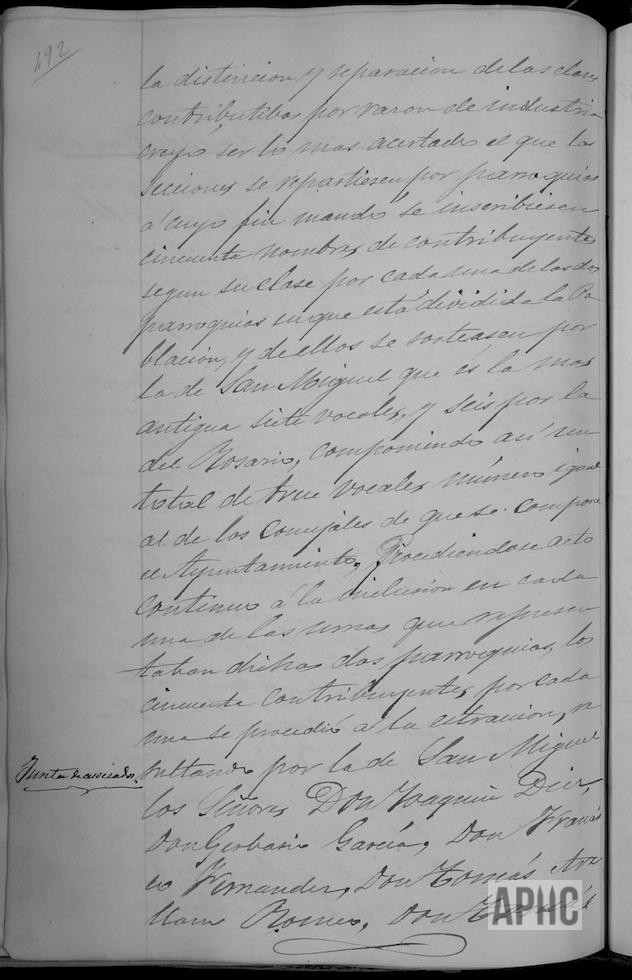 492
la distincion y separacion de las clases
contributibas por razon de industria
creyo ser lo mas acertado el que las
secciones se repartiesen por parroquias
á cuyo fin mandó se inscribiesen
cincuenta nombres de contribuyentes
segun su clase por cada una de las dos
parroquias en que está dividida la Po-
blacion, y de ellos se sorteasen por
la de San Miguel que és la mas
antigua siete vocales, y seis por la
del Rosario, componiendo así un
total de trece vocales número igual
al de los Concejales de que se compone
el Ayuntamiento, Procediendose acto
continuo á la inclusion en cada
una de las urnas que represen
taban dichas dos parroquias, los
cincuenta contribuyentes por cada
una se procedió á la estraccion, re
sultando por la de San Miguel
Junta de asociados.
los Señores Don Joaquin Diez,
Don Gerbasio García, Don Francis
co Fernandez, Don Tomás
Romeo, Don
APHC